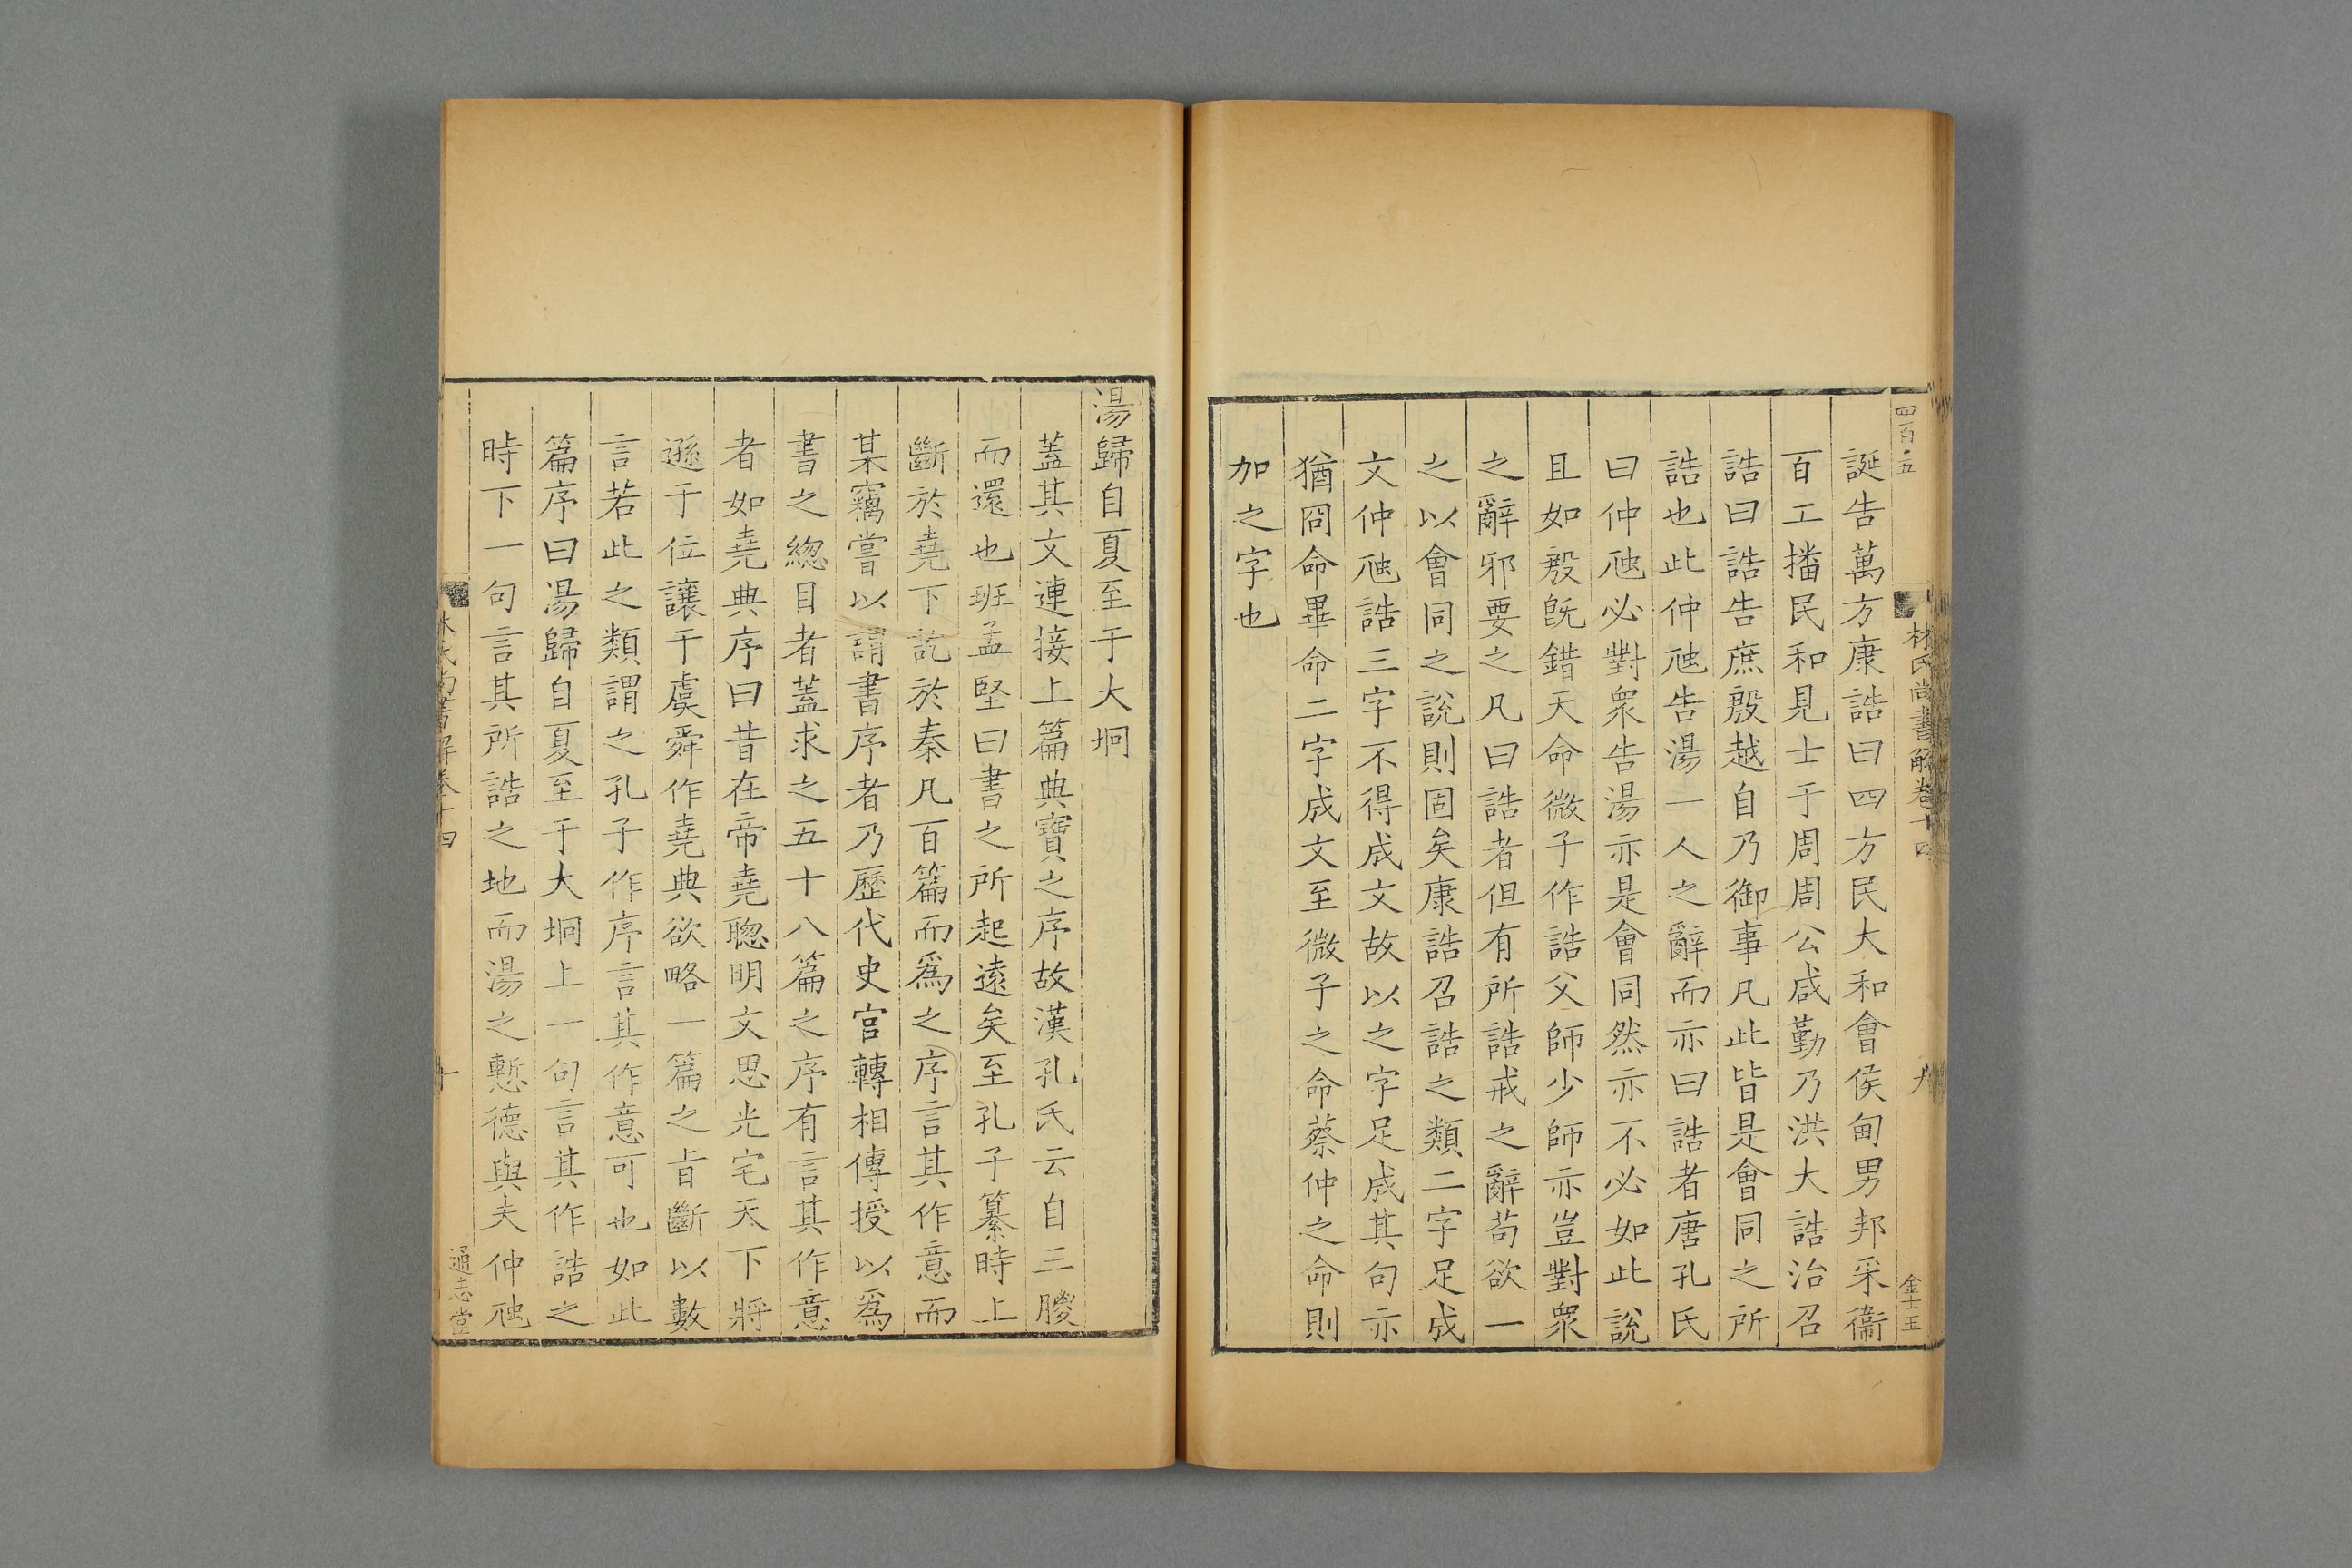 四百五
林氏尚書解卷十四
九
金士玉
誕告萬方康誥曰四方民大和會侯甸男邦采衞
百工播民和見士于周周公咸勤乃洪大誥治召
誥曰誥告庶殷越自乃御事凡此皆是會同之所
誥也此仲虺告湯一人之辭而亦曰誥者唐孔氏
曰仲虺必對衆告湯亦是會同然亦不必如此說
且如殷旣錯天命微子作誥父師少師亦豈對衆
之辭邪要之凡曰誥者但有所誥戒之辭苟欲一
之以會同之說則固矣康誥召誥之類二字足成
文仲虺誥三字不得成文故以之字足成其句亦
猶冏命畢命二字成文至微子之命蔡仲之命則
加之字也
湯歸自夏至于大坰
蓋其文連接上篇典寶之序故漢孔氏云自三朡
而還也班孟堅曰書之所起遠矣至孔子纂時上
斷於堯下訖於秦凡百篇而爲之序言其作意而
某竊嘗以謂書序者乃歷代史官轉相傳授以爲
書之緫目者蓋求之五十八篇之序有言其作意
者如堯典序曰昔在帝堯聦明文思光宅天下將
遜于位讓于虞舜作堯典欲略一篇之旨斷以數
言若此之類謂之孔子作序言其作意可也如此
篇序曰湯歸自夏至于大坰上一句言其作誥之
時下一句言其所誥之地而湯之慙德與夫仲虺
林氏尚書解卷十四
十
通志堂